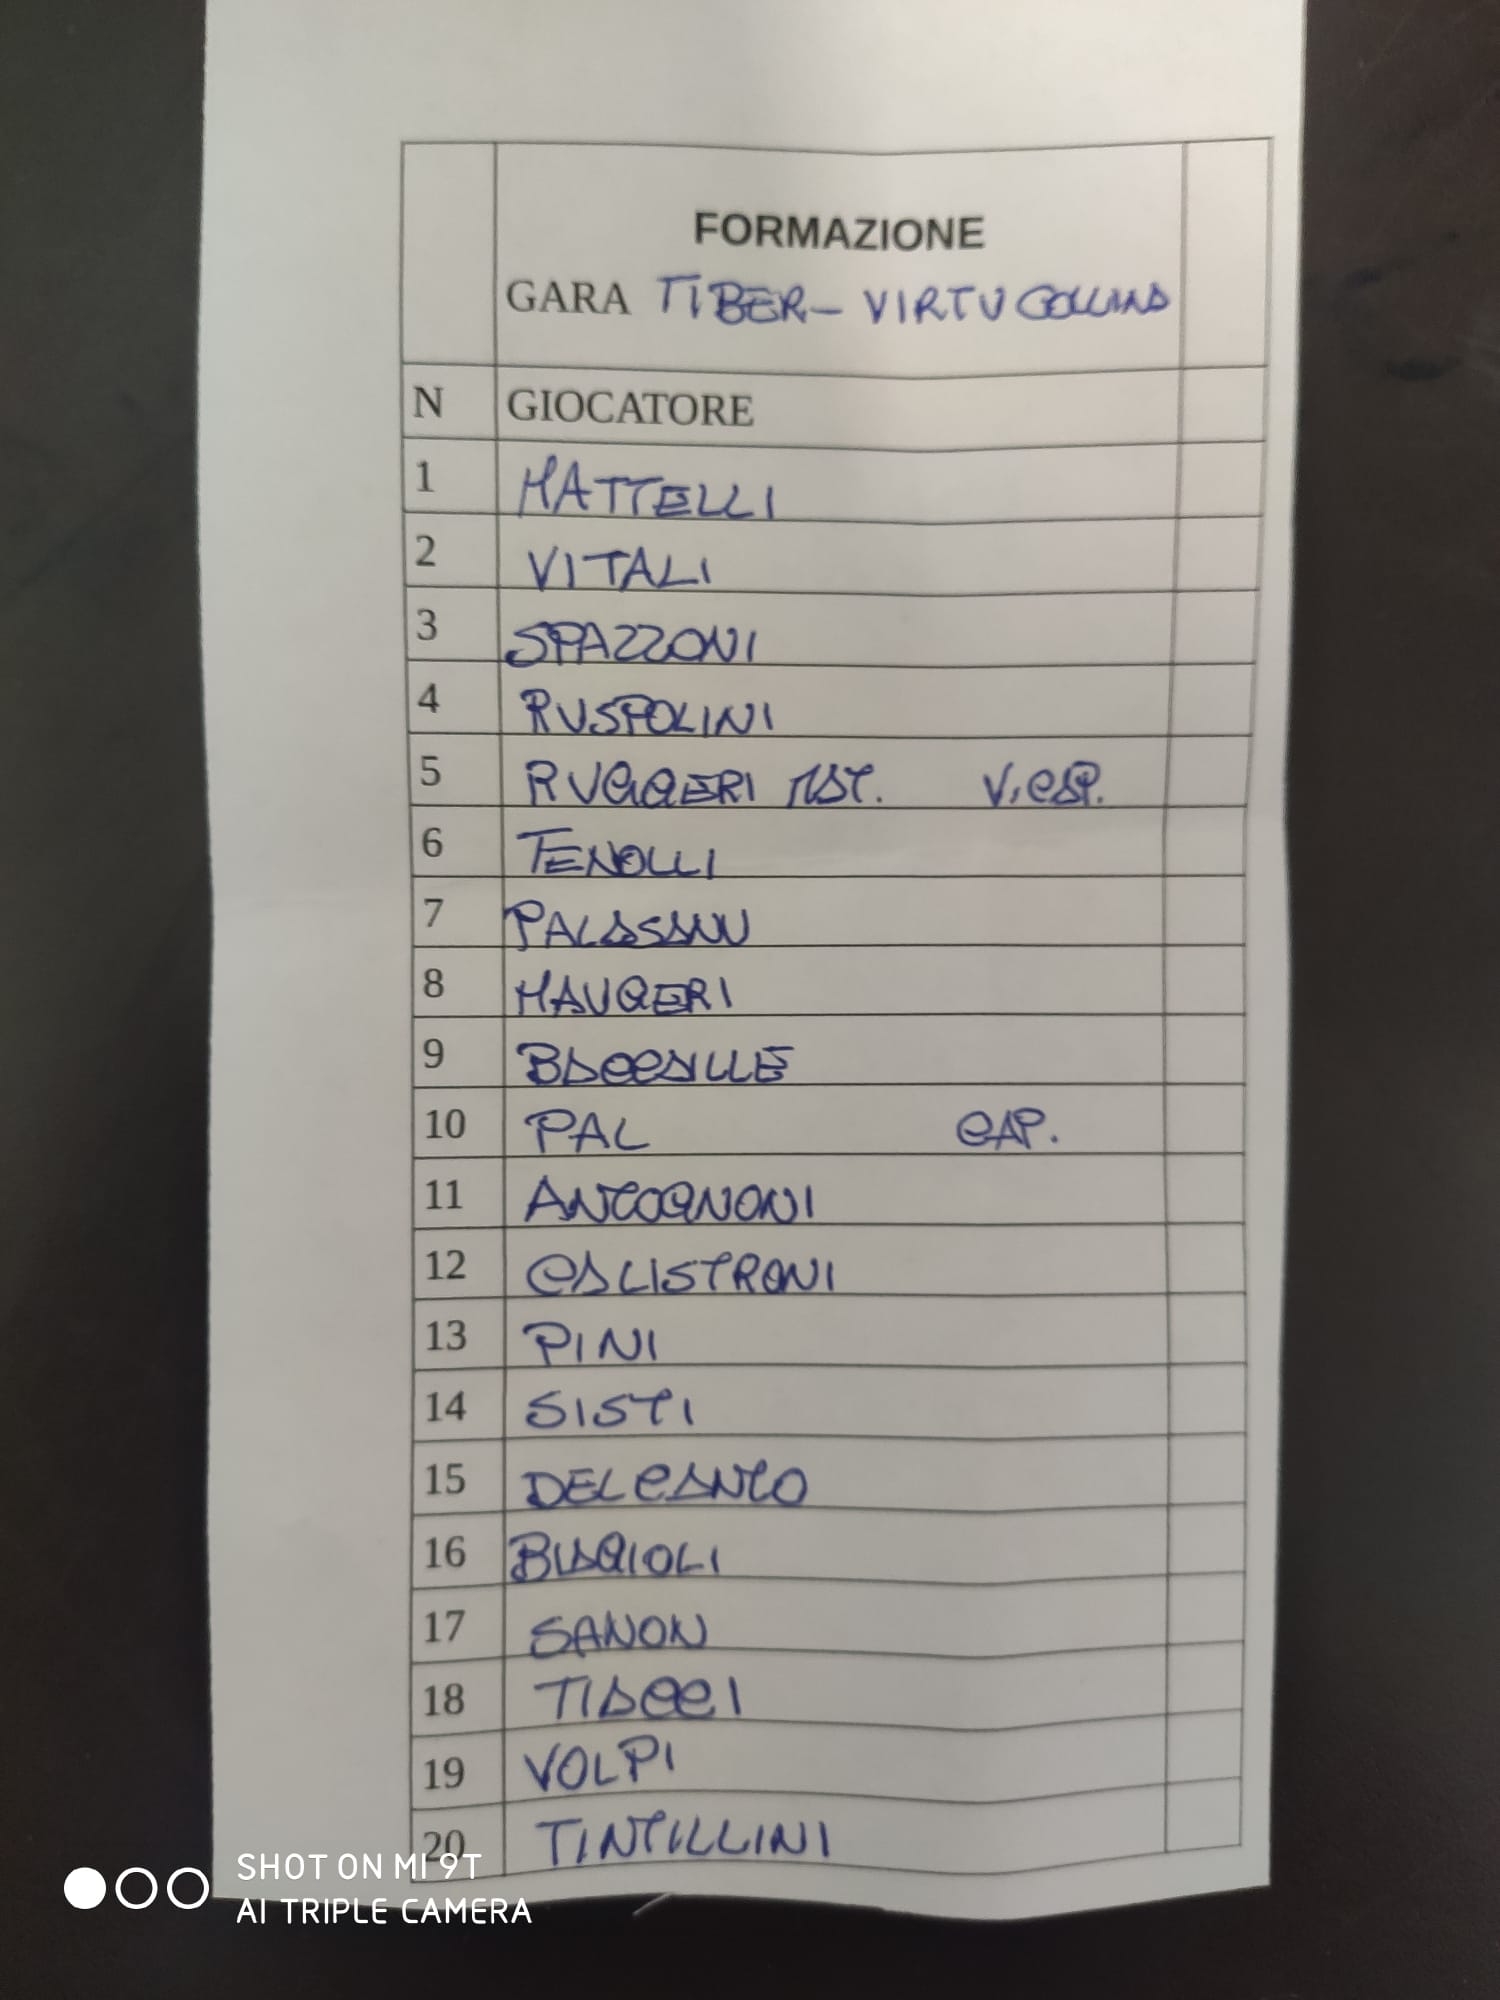 FORMAZIONE
GARA TIBER - VIRTU COLLINA
N GIOCATORE
1 MATTELLI
2 VITALI
3 SPAZZONI
4 RUSPOLINI
5 RUGGERI V.CAP.
6 TENOLLI
7
8 MAUGERI
9 BACCAILLE
10 PAL CAP.
11 ANTOGNONI
12 CALISTRONI
13 PINI
14 SISTI
15 DEL CANTO
16 BIAGIOLI
17 SANON
18 TIACCI
19 VOLPI
20 TINTILLINI
SHOT ON MI 9T
AI TRIPLE CAMERA